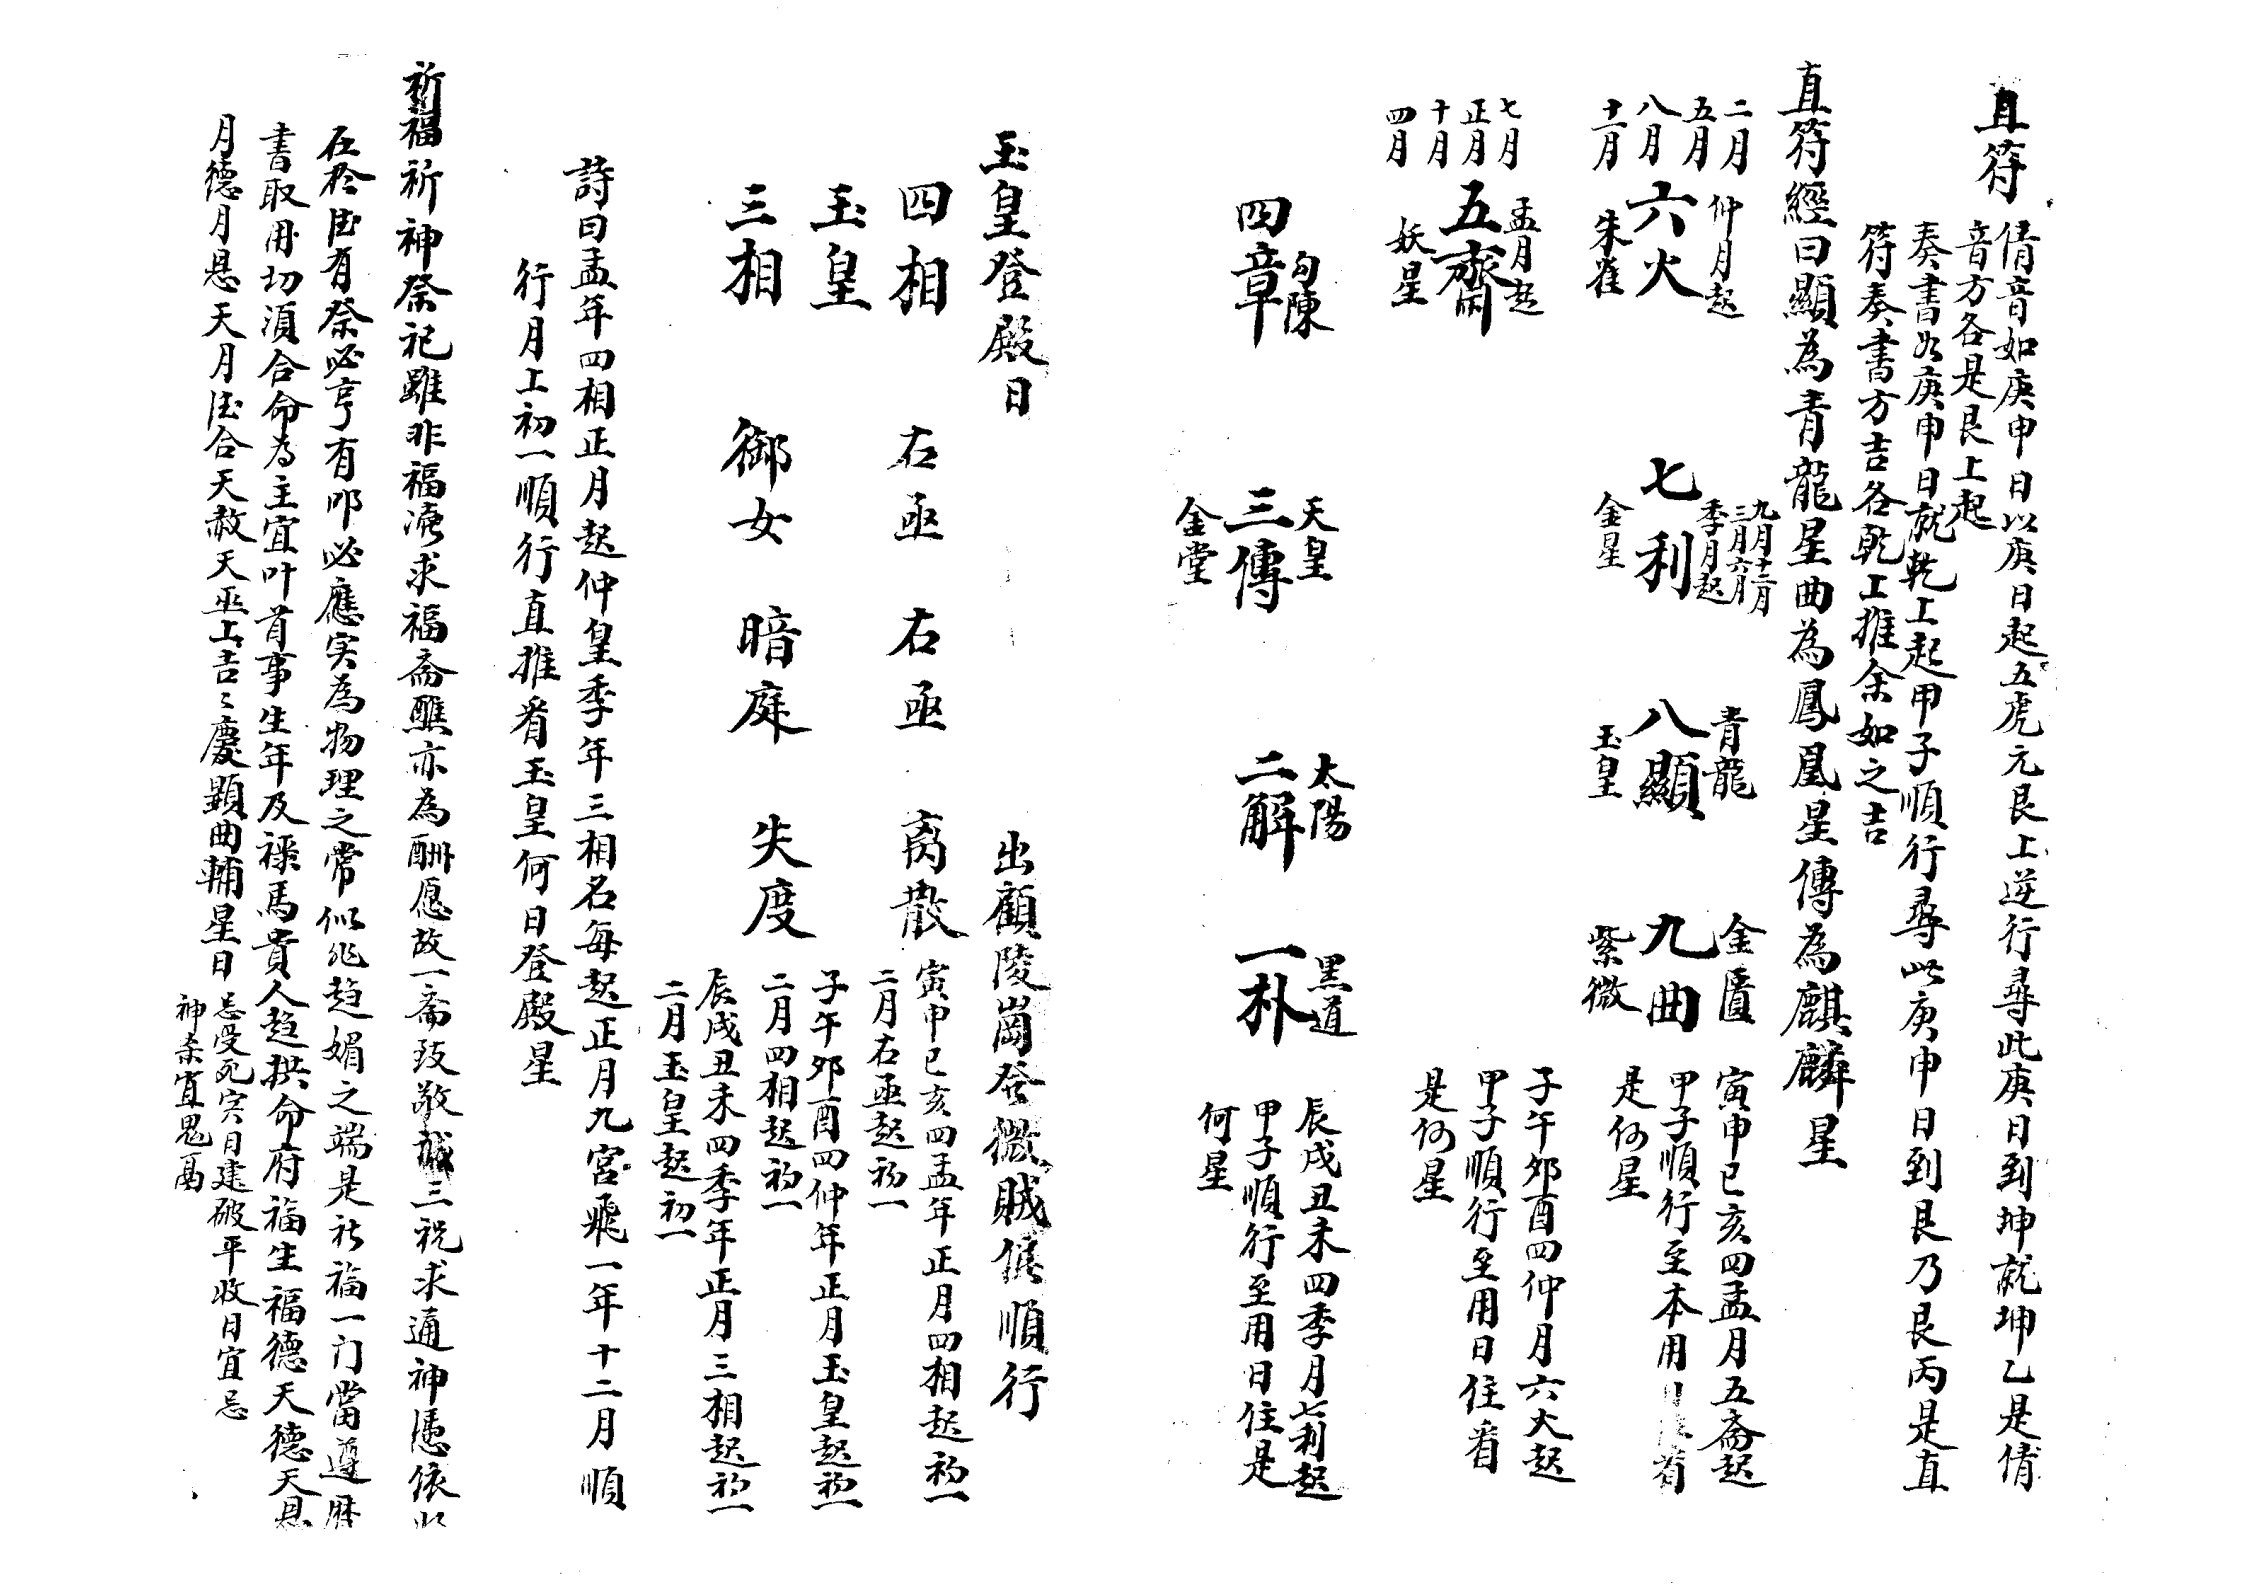 直符
倩音如庚申日以庚日起五虎元艮上逆行尋此庚日到坤就坤乙是倩
音方各是艮上起
奏書如庚申日就乾上起甲子順行尋此庚申日到艮乃艮丙是直
符奏書方吉各乾上推余如之吉
直符經曰顯為青龍星曲為鳳凰星傳為麒麟星
二月
五月
八月
十一月
仲月起
六火
朱雀
九月十二月
三月六月
季月起
七利
金星
青龍
八顯
玉皇
金匱
九曲
紫微
寅申巳亥四孟月五齋起
甲子順行至本用
是何星
七月
正月
十月
四月
孟月起
五齋
妖星
子午卯酉四仲月六火起
甲子順行至用日住看
是何星
勾陳
四章
天皇
三傳
金堂
太陽
二解
黑道
一朴
辰戌丑未四季月七利起
甲子順行至用日住是
何星
玉皇登殿日
出顧陵崗登微賊候順行
四相 右丞 右丞 离散
寅申巳亥四孟年正月四相起初一
二月右丞起初一
玉皇
子午卯酉四仲年正月玉皇起初一
二月四相起初一
三相 御女 暗庭 失度
辰戌丑未四季年正月三相起初一
二月玉皇起初一
詩曰孟年四相正月起仲皇季年三相名每起正月九宮飛一年十二月順
行月上初一順行直推看玉皇何日登殿星
祈福祈神祭祀雖非福淹求福斋醮亦為酬愿故一斋致敬誠三祝求通神憑依
在於德有祭必亨有叩必應实為物理之常似非趋媚之端是祈福一门當遵曆
書取用切須合命為主宜叶首事生年及祿馬貴人趋拱命府福生福德天德天恩
月德月恩天月德合天赦天巫上吉〻慶顯曲輔星日
忌受死灾日建破平收日宜忌
神杀宜鬼鬲